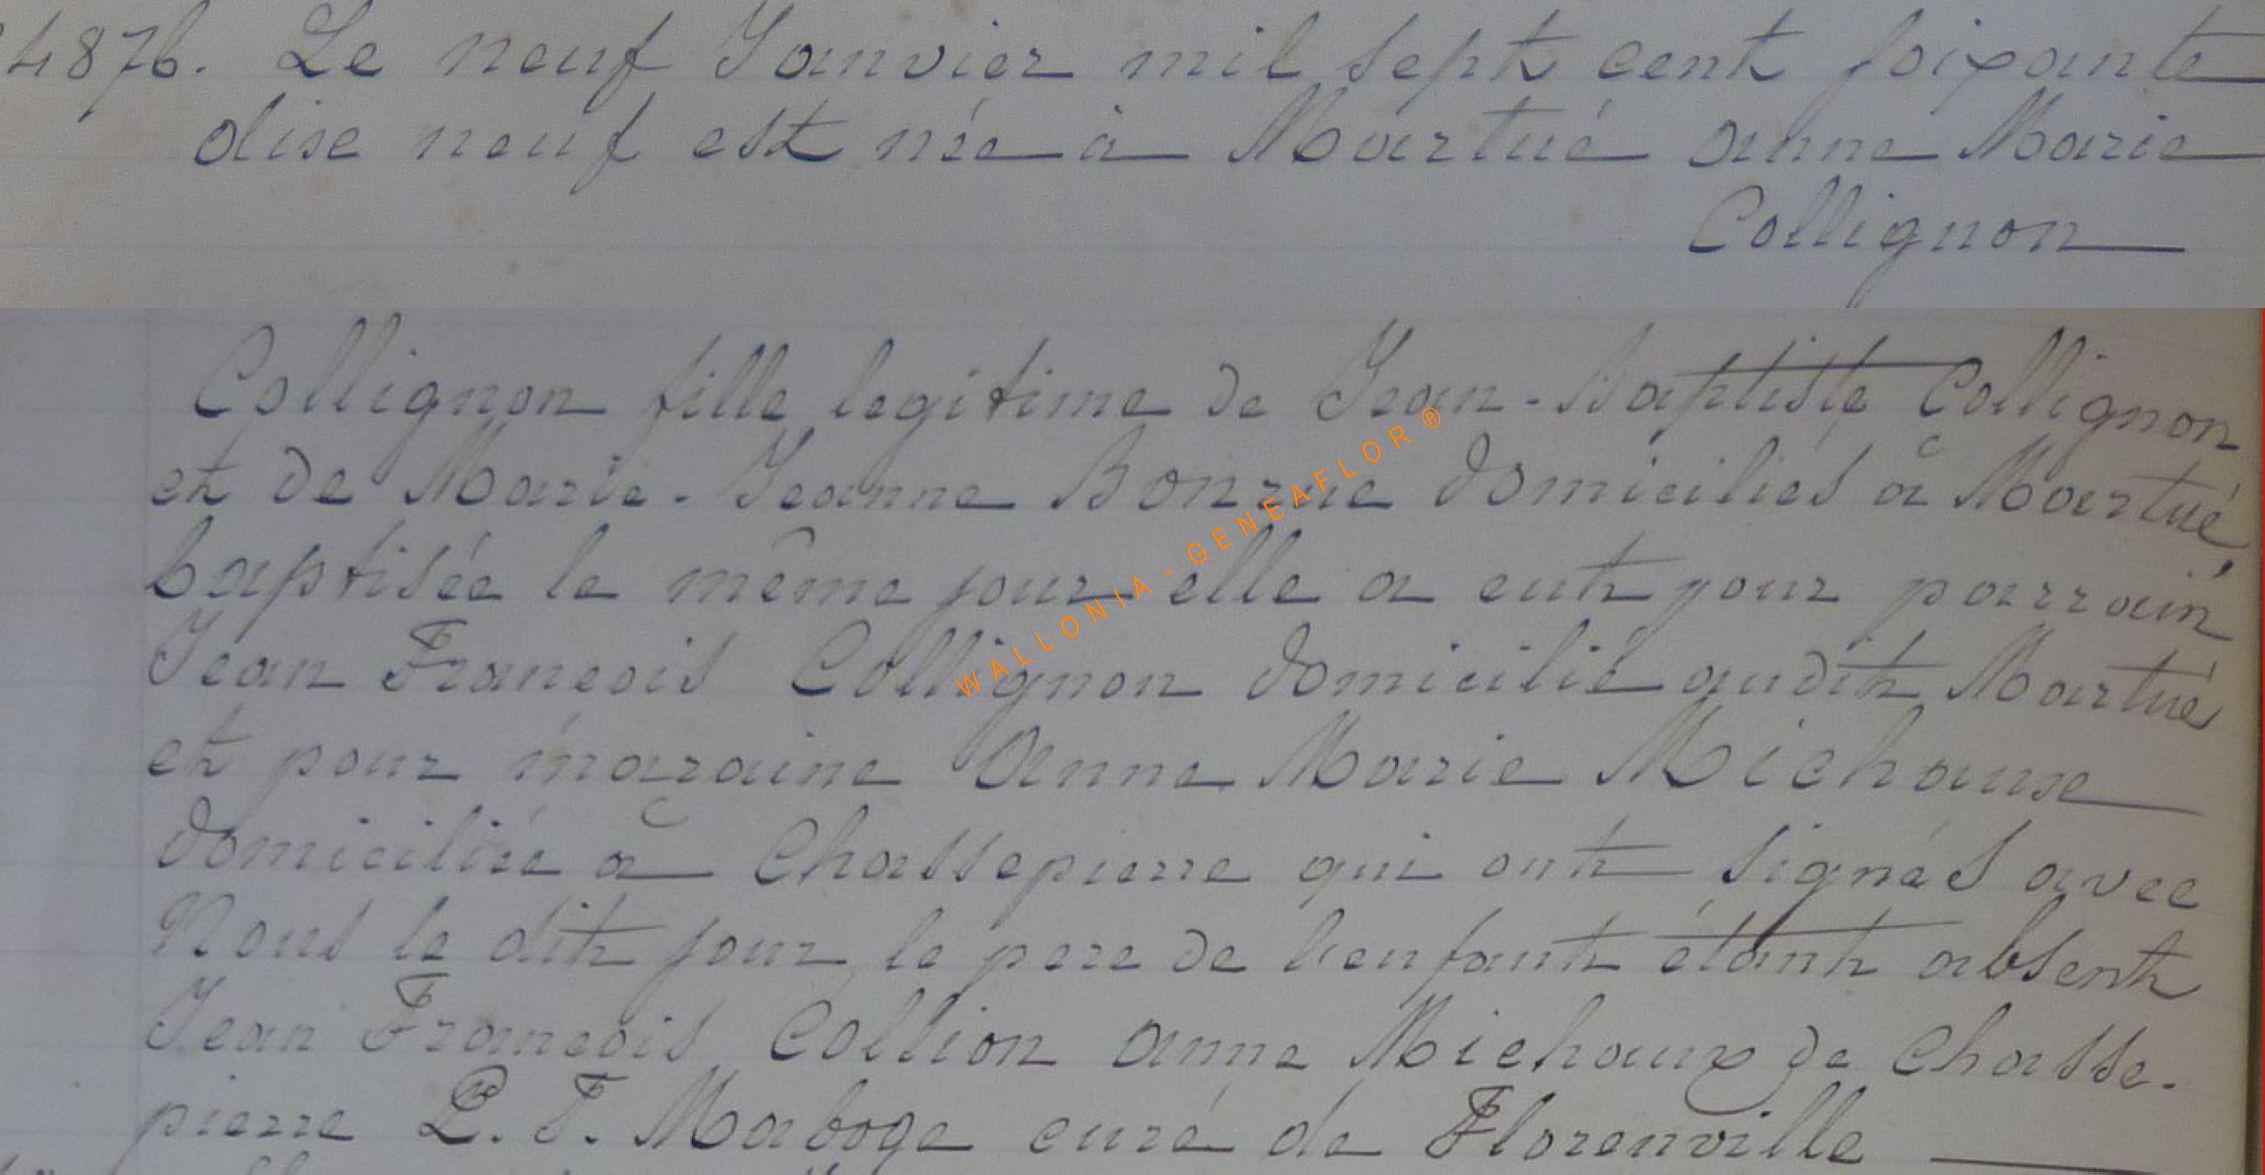 4876. Le neuf Janvier mil sept cent soixante
dise neuf est née à Martué anne Marie
Collignon
Collignon fille legitime de Jean-Baptiste Collignon
et de Marie-Jeanne Bonrue domiciliés à Martué,
baptisée le même jour elle a eut pour parrain
Jean François Collignon domicilié audit Martué
et pour maraine Anne Marie Michause
domiciliée à Chassepierre qui ont signés avec
Nous le dit jour le pere de l'enfant étant absent
Jean François Collion Anne Michaux de Chasse-
pierre L. F. Maboge curé de Florenville
WALLONIA - GENEAFLOR ®